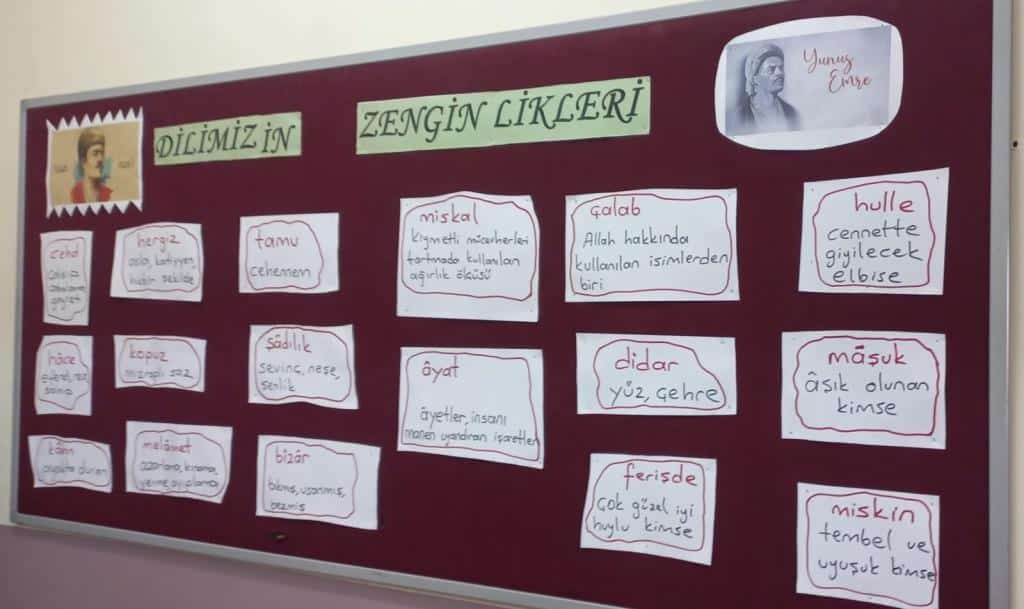 DİLİMİZİN ZENGİN LİKLERİ
Yunus
Emre
cehd
çalışıp
gayret
hergiz
asla, katiyyen,
hiçbir şekilde
tamu
cehennem
miskal
kıymetli mücevherleri
tartmada kullanılan
ağırlık ölçüsü
çalab
Allah hakkında
kullanılan isimlerden
biri
hulle
cennette
giyilecek
elbise
hâce
efendi,
kopuz
mızraplı saz
şâdılık
sevinç, neşe,
şenlik
âyat
âyetler, insanı
manen uyandıran işaretler
didar
yüz, çehre
mâşuk
âşık olunan
kimse
ayakta duran
melâmet
azarlama, kınama,
yerme, ayıplama
bizâr
bıkmış, usanmış,
bezmiş
ferişde
çok güzel iyi
huylu kimse
miskin
tembel ve
uyuşuk bimse